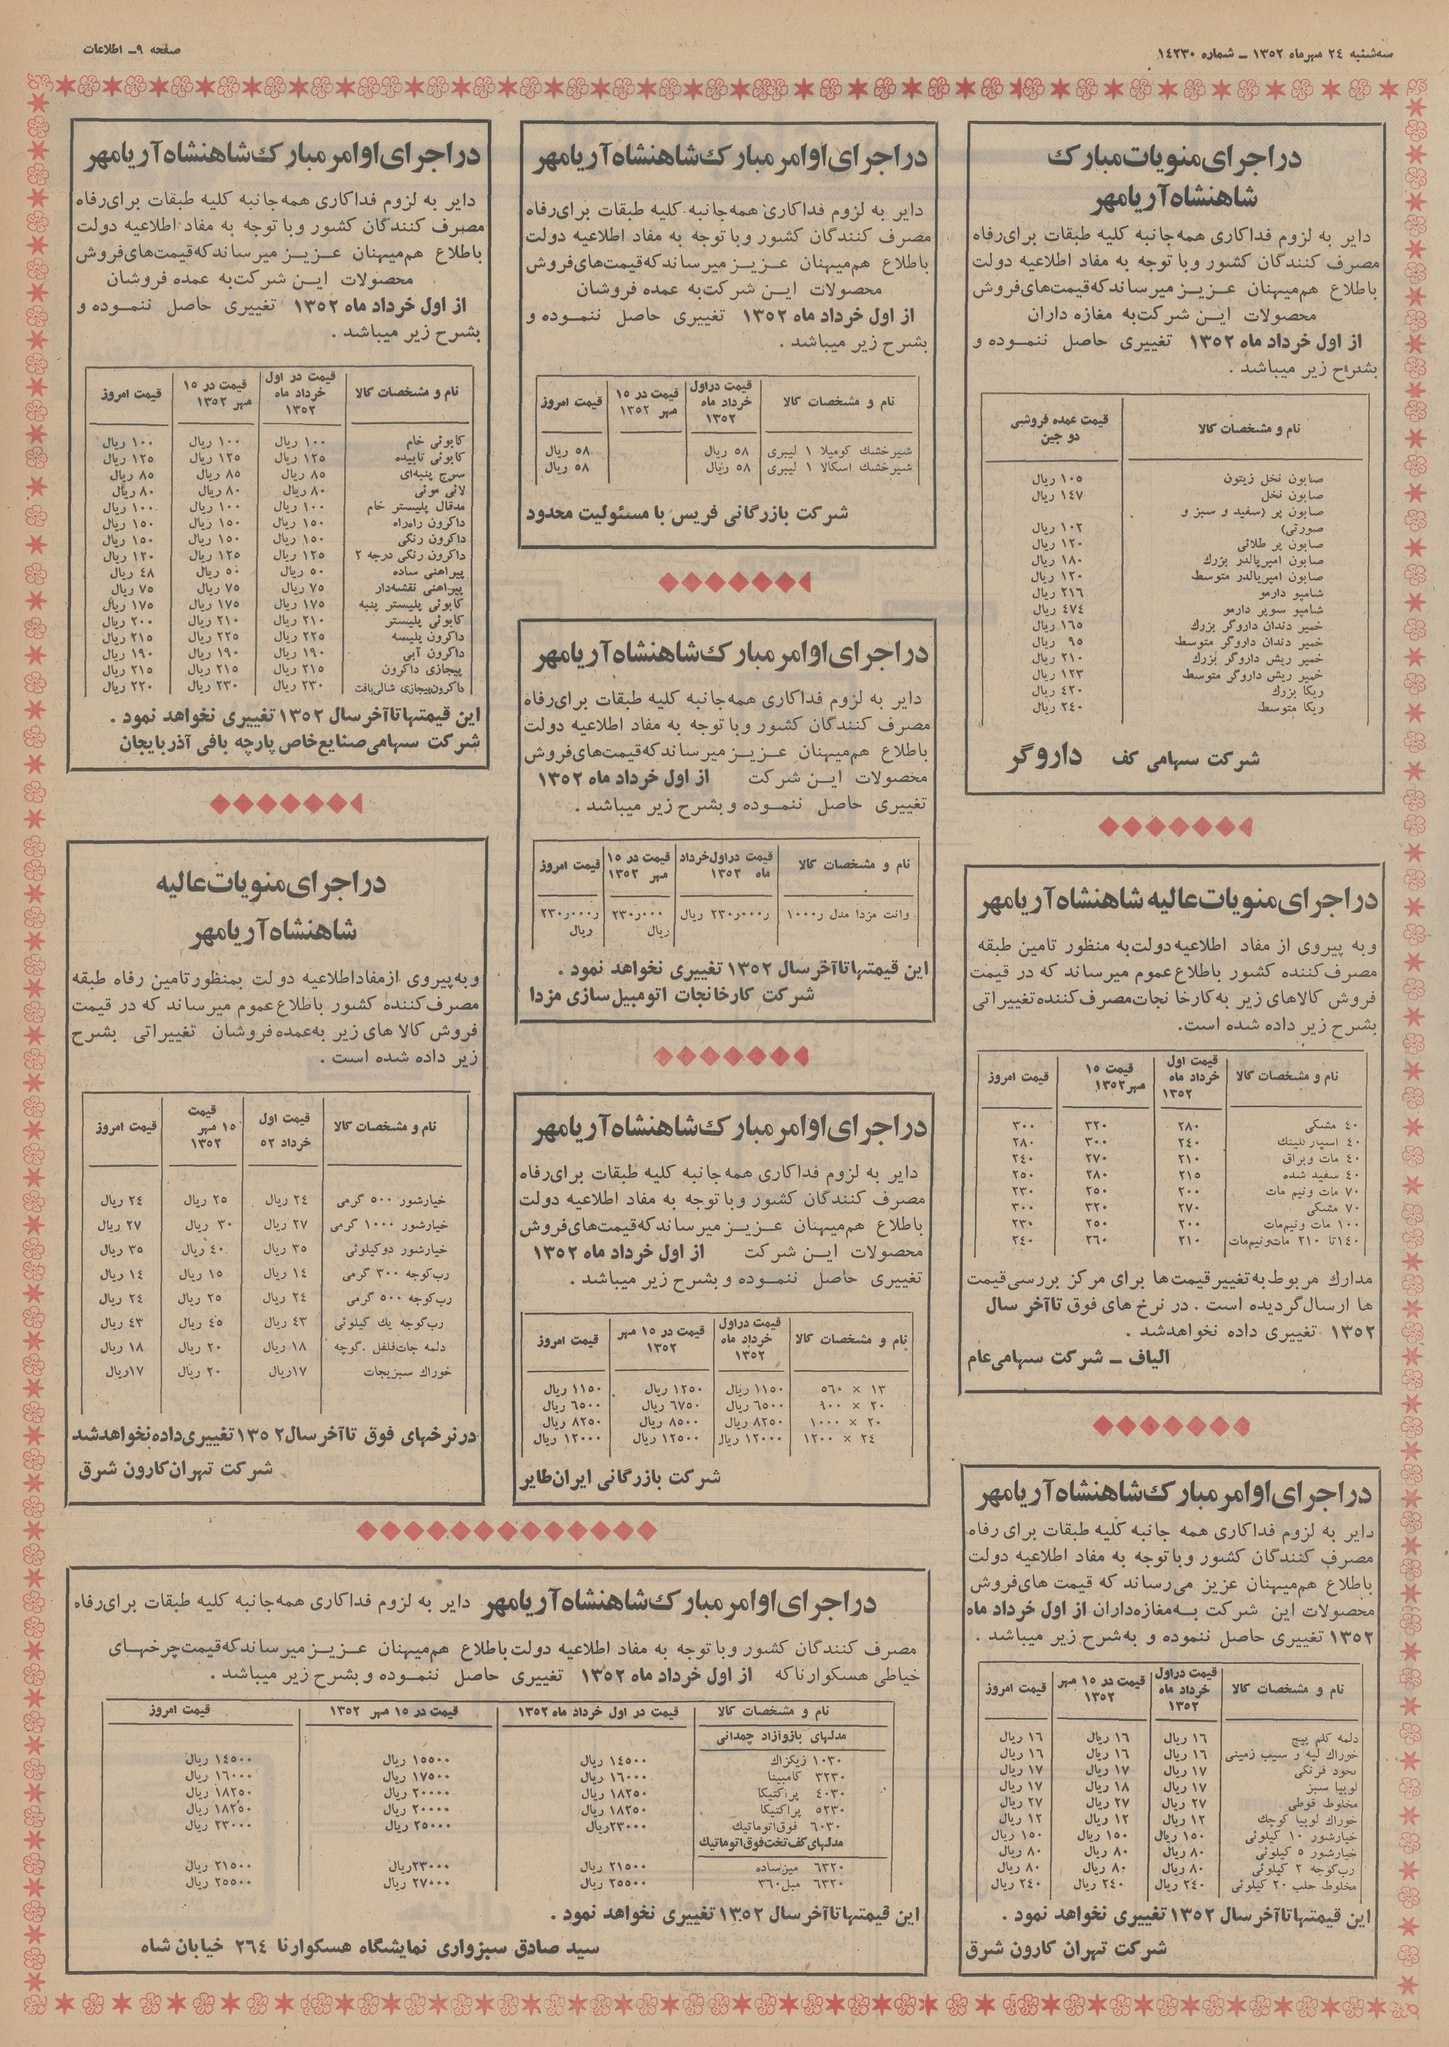 سه‌شنبه ۲۴ مهرماه ۱۳۵۲ ـ شماره ۱۴۲۳۰
صفحه ۹ـ اطلاعات
در اجرای منویات مبارک
شاهنشاه آریامهر
دایر به لزوم فداکاری همه جانبه کلیه طبقات برای رفاه
مصرف کنندگان کشور و با توجه به مفاد اطلاعیه دولت
باطلاع هم‌میهنان عزیز میرساند که قیمت‌های فروش
محصولات این شرکت به مغازه داران
از اول خرداد ماه ۱۳۵۲ تغییری حاصل ننموده و
بشرح زیر میباشد .
نام و مشخصات کالا | قیمت عمده فروشی دو جین
صابون نخل زیتون ۱۰۵ ریال
صابون نخل ۱۴۷ ریال
صابون پر (سفید و سبز و
صورتی) ۱۰۲ ریال
صابون پر طلائی ۱۲۰ ریال
صابون امپریالدر بزرک ۱۸۰ ریال
صابون امپریالدر متوسط ۱۲۰ ریال
شامپو دارمو ۲۱۶ ریال
شامپو سوپر دارمو ۴۷۴ ریال
خمیر دندان داروگر بزرك ۱۶۵ ریال
خمیر دندان داروگر متوسط ۹۵ ریال
خمیر ریش داروگر بزرك ۲۱۰ ریال
خمیر ریش داروگر متوسط ۱۲۳ ریال
ریکا بزرك ۴۲۰ ریال
ریکا متوسط ۲۴۰ ریال
شرکت سهامی کف داروگر
در اجرای منویات عالیه شاهنشاه آریامهر
و به پیروی از مفاد اطلاعیه دولت به منظور تامین طبقه
مصرف کننده کشور باطلاع عموم میرساند که در قیمت
فروش کالاهای زیر به کارخانجات مصرف کننده تغییراتی
بشرح زیر داده شده است.
نام و مشخصات کالا | قیمت اول خرداد ماه ۱۳۵۲ | قیمت ۱۵ مهر ۱۳۵۲ | قیمت امروز
۴۰ مشکی ۲۸۰ ۳۲۰ ۳۰۰
۴۰ اسپارکلینك ۲۴۰ ۳۰۰ ۲۸۰
۴۰ مات و براق ۲۱۰ ۲۷۰ ۲۴۰
۴۰ سفید شده ۲۱۵ ۲۸۰ ۲۵۰
۷۰ مات و نیم مات ۲۰۰ ۲۵۰ ۲۳۰
۷۰ مشکی ۲۷۰ ۳۲۰ ۳۰۰
۱۰۰ مات و نیم‌مات ۲۰۰ ۲۵۰ ۲۳۰
۱۴۰ تا ۲۱۰ مات و نیم‌مات ۲۱۰ ۲۶۰ ۲۴۰
مدارك مربوط به تغییر قیمت ها برای مرکز بررسی قیمت
ها ارسال گردیده است . در نرخ های فوق تا آخر سال
۱۳۵۲ تغییری داده نخواهد شد .
الیاف ـ شرکت سهامی عام
در اجرای اوامر مبارک شاهنشاه آریامهر
دایر به لزوم فداکاری همه جانبه کلیه طبقات برای رفاه
مصرف کنندگان کشور و با توجه به مفاد اطلاعیه دولت
باطلاع هم‌میهنان عزیز می‌رساند که قیمت های فروش
محصولات این شرکت به مغازه‌داران از اول خرداد ماه
۱۳۵۲ تغییری حاصل ننموده و به شرح زیر میباشد .
نام و مشخصات کالا | قیمت در اول خرداد ماه ۱۳۵۲ | قیمت در ۱۵ مهر ۱۳۵۲ | قیمت امروز
دلمه کلم پیچ ۱۶ ریال ۱۶ ریال ۱۶ ریال
خوراك لپه و سیب زمینی ۱۶ ریال ۱۶ ریال ۱۶ ریال
نخود فرنگی ۱۷ ریال ۱۷ ریال ۱۷ ریال
لوبیا سبز ۱۷ ریال ۱۸ ریال ۱۷ ریال
مخلوط قوطی ۲۷ ریال ۲۷ ریال ۲۷ ریال
خوراك لوبیا کوچك ۱۲ ریال ۱۲ ریال ۱۲ ریال
خیارشور ۱۰ کیلوئی ۱۵۰ ریال ۱۵۰ ریال ۱۵۰ ریال
خیارشور ۵ کیلوئی ۸۰ ریال ۸۰ ریال ۸۰ ریال
رب‌گوجه ۲ کیلوئی ۸۰ ریال ۸۰ ریال ۸۰ ریال
مخلوط حلب ۲۰ کیلوئی ۲۴۰ ریال ۲۴۰ ریال ۲۴۰ ریال
این قیمتها تا آخر سال ۱۳۵۲ تغییری نخواهد نمود .
شرکت تهران کارون شرق
در اجرای اوامر مبارک شاهنشاه آریامهر
دایر به لزوم فداکاری همه جانبه کلیه طبقات برای رفاه
مصرف کنندگان کشور و با توجه به مفاد اطلاعیه دولت
باطلاع هم‌میهنان عزیز میرساند که قیمت‌های فروش
محصولات این شرکت به عمده فروشان
از اول خرداد ماه ۱۳۵۲ تغییری حاصل ننموده و
بشرح زیر میباشد .
نام و مشخصات کالا | قیمت در اول خرداد ماه ۱۳۵۲ | قیمت در ۱۵ مهر ۱۳۵۲ | قیمت امروز
شیرخشك کومیلا ۱ لیبری ۵۸ ریال ۵۸ ریال
شیرخشك اسکالا ۱ لیبری ۵۸ ریال ۵۸ ریال
شرکت بازرگانی فریس با مسئولیت محدود
در اجرای اوامر مبارک شاهنشاه آریامهر
دایر به لزوم فداکاری همه جانبه کلیه طبقات برای رفاه
مصرف کنندگان کشور و با توجه به مفاد اطلاعیه دولت
باطلاع هم‌میهنان عزیز میرساند که قیمت‌های فروش
محصولات این شرکت از اول خرداد ماه ۱۳۵۲
تغییری حاصل ننموده و بشرح زیر میباشد .
نام و مشخصات کالا | قیمت در اول خرداد ماه ۱۳۵۲ | قیمت در ۱۵ مهر ۱۳۵۲ | قیمت امروز
وانت مزدا مدل ۱۰۰۰ر ۲۳۰ر۰۰۰ر ریال ۲۳۰ر۰۰۰ ریال ۲۳۰ر۰۰۰ر ریال
این قیمتها تا آخر سال ۱۳۵۲ تغییری نخواهد نمود .
شرکت کارخانجات اتومبیل سازی مزدا
در اجرای اوامر مبارک شاهنشاه آریامهر
دایر به لزوم فداکاری همه جانبه کلیه طبقات برای رفاه
مصرف کنندگان کشور و با توجه به مفاد اطلاعیه دولت
باطلاع هم‌میهنان عزیز میرساند که قیمت‌های فروش
محصولات این شرکت از اول خرداد ماه ۱۳۵۲
تغییری حاصل ننموده و بشرح زیر میباشد .
نام و مشخصات کالا | قیمت در اول خرداد ماه ۱۳۵۲ | قیمت در ۱۵ مهر ۱۳۵۲ | قیمت امروز
۱۳ × ۵۶۰ ۱۱۵۰ ریال ۱۲۵۰ ریال ۱۱۵۰ ریال
۲۰ × ۹۰۰ ۶۵۰۰ ریال ۶۷۵۰ ریال ۶۵۰۰ ریال
۲۰ × ۱۰۰۰ ۸۲۵۰ ریال ۸۵۰۰ ریال ۸۲۵۰ ریال
۲۴ × ۱۲۰۰ ۱۲۰۰۰ ریال ۱۲۵۰۰ ریال ۱۲۰۰۰ ریال
شرکت بازرگانی ایران طایر
در اجرای اوامر مبارک شاهنشاه آریامهر
دایر به لزوم فداکاری همه جانبه کلیه طبقات برای رفاه
مصرف کنندگان کشور و با توجه به مفاد اطلاعیه دولت
باطلاع هم‌میهنان عزیز میرساند که قیمت‌های فروش
محصولات این شرکت به عمده فروشان
از اول خرداد ماه ۱۳۵۲ تغییری حاصل ننموده و
بشرح زیر میباشد .
نام و مشخصات کالا | قیمت در اول خرداد ماه ۱۳۵۲ | قیمت در ۱۵ مهر ۱۳۵۲ | قیمت امروز
کابوئی خام ۱۰۰ ریال ۱۰۰ ریال ۱۰۰ ریال
کابوئی تابیده ۱۲۵ ریال ۱۲۵ ریال ۱۲۵ ریال
سرج پنبه‌ای ۸۵ ریال ۸۵ ریال ۸۵ ریال
لائی موئی ۸۰ ریال ۸۰ ریال ۸۰ ریال
مدقال پلیستر خام ۱۰۰ ریال ۱۰۰ ریال ۱۰۰ ریال
داکرون راه‌راه ۱۵۰ ریال ۱۵۰ ریال ۱۵۰ ریال
داکرون رنگی ۱۵۰ ریال ۱۵۰ ریال ۱۵۰ ریال
داکرون رنگی درجه ۲ ۱۲۵ ریال ۱۲۵ ریال ۱۲۰ ریال
پیراهنی ساده ۵۰ ریال ۵۰ ریال ۴۸ ریال
پیراهنی نقشه‌دار ۷۵ ریال ۷۵ ریال ۷۵ ریال
کابوئی پلیستر پنبه ۱۷۵ ریال ۱۷۵ ریال ۱۷۵ ریال
کابوئی پلیستر ۲۱۰ ریال ۲۱۰ ریال ۲۰۰ ریال
داکرون پلیسه ۲۲۵ ریال ۲۲۵ ریال ۲۱۵ ریال
داکرون آبی ۱۹۰ ریال ۱۹۰ ریال ۱۹۰ ریال
پیچازی داکرون ۲۱۵ ریال ۲۱۵ ریال ۲۱۵ ریال
داکرون پیچازی شالی‌بافت ۲۳۰ ریال ۲۳۰ ریال ۲۲۰ ریال
این قیمتها تا آخر سال ۱۳۵۲ تغییری نخواهد نمود .
شرکت سهامی صنایع خاص پارچه بافی آذربایجان
در اجرای منویات عالیه
شاهنشاه آریامهر
و به پیروی از مفاد اطلاعیه دولت بمنظور تامین رفاه طبقه
مصرف کننده کشور باطلاع عموم میرساند که در قیمت
فروش کالا های زیر به عمده فروشان تغییراتی بشرح
زیر داده شده است .
نام و مشخصات کالا | قیمت اول خرداد ۵۲ | قیمت ۱۵ مهر ۱۳۵۲ | قیمت امروز
خیارشور ۵۰۰ گرمی ۲۴ ریال ۲۵ ریال ۲۴ ریال
خیارشور ۱۰۰۰ گرمی ۲۷ ریال ۳۰ ریال ۲۷ ریال
خیارشور دوکیلوئی ۳۵ ریال ۴۰ ریال ۳۵ ریال
رب‌گوجه ۳۰۰ گرمی ۱۴ ریال ۱۵ ریال ۱۴ ریال
رب‌گوجه ۵۰۰ گرمی ۲۴ ریال ۲۵ ریال ۲۴ ریال
رب‌گوجه یك کیلوئی ۴۳ ریال ۴۵ ریال ۴۳ ریال
دلمه جات‌فلفل .گوجه ۱۸ ریال ۲۰ ریال ۱۸ ریال
خوراك سبزیجات ۱۷ریال ۲۰ ریال ۱۷ریال
در نرخهای فوق تا آخر سال ۱۳۵۲ تغییری داده نخواهد شد
شرکت تهران کارون شرق
در اجرای اوامر مبارک شاهنشاه آریامهر دایر به لزوم فداکاری همه جانبه کلیه طبقات برای رفاه
مصرف کنندگان کشور و با توجه به مفاد اطلاعیه دولت باطلاع هم‌میهنان عزیز میرساند که قیمت چرخهای
خیاطی هسکوارنا که از اول خرداد ماه ۱۳۵۲ تغییری حاصل ننموده و بشرح زیر میباشد .
نام و مشخصات کالا | قیمت در اول خرداد ماه ۱۳۵۲ | قیمت در ۱۵ مهر ۱۳۵۲ | قیمت امروز
مدلهای بازوآزاد چمدانی
۱۰۳۰ زیکزاك ۱۴۵۰۰ ریال ۱۵۵۰۰ ریال ۱۴۵۰۰ ریال
۳۲۳۰ کامبینا ۱۶۰۰۰ ریال ۱۷۵۰۰ ریال ۱۶۰۰۰ ریال
۴۰۳۰ پراکتیکا ۱۸۲۵۰ ریال ۲۰۰۰۰ ریال ۱۸۲۵۰ ریال
۵۲۳۰ پراکتیکا ۱۸۲۵۰ ریال ۲۰۰۰۰ ریال ۱۸۲۵۰ ریال
۶۰۳۰ فوق‌اتوماتیك ۲۳۰۰۰ریال ۲۵۰۰۰ ریال ۲۳۰۰۰ ریال
مدلهای کف تخت فوق اتوماتیك
۶۳۲۰ میزساده ۲۱۵۰۰ ریال ۲۳۰۰۰ریال ۲۱۵۰۰ ریال
۶۳۲۰ مبل ۳۶۰ ۲۵۵۰۰ ریال ۲۷۰۰۰ ریال ۲۵۵۰۰ ریال
این قیمتها تا آخر سال ۱۳۵۲ تغییری نخواهد نمود .
سید صادق سبزواری نمایشگاه هسکوارنا ۲۶۴ خیابان شاه